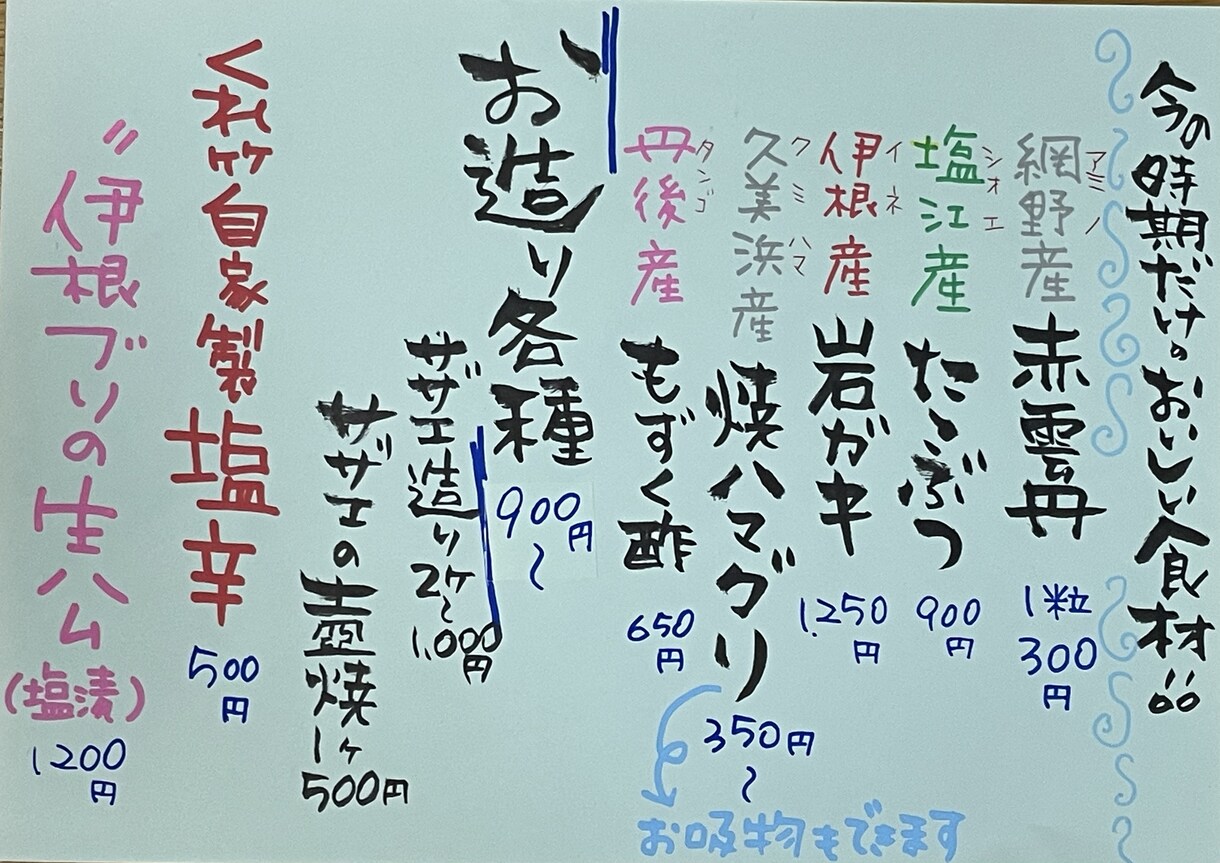 今の時期だけのおいしい食材!!
網野産 赤雲丹 1粒 300円
アミノ
塩江産 たこぶつ 900円
シオエ
伊根産 岩ガキ 1.250円
イネ
久美浜産 焼ハマグリ 350円〜
クミハマ
お吸物もできます
丹後産 もずく酢 650円
タンゴ
お造り各種 900円〜
サザエ造り2ケ〜1,000円
サザエの壺焼1ケ500円
くれ竹自家製塩辛 500円
〃伊根ブリの生ハム(塩漬) 1200円